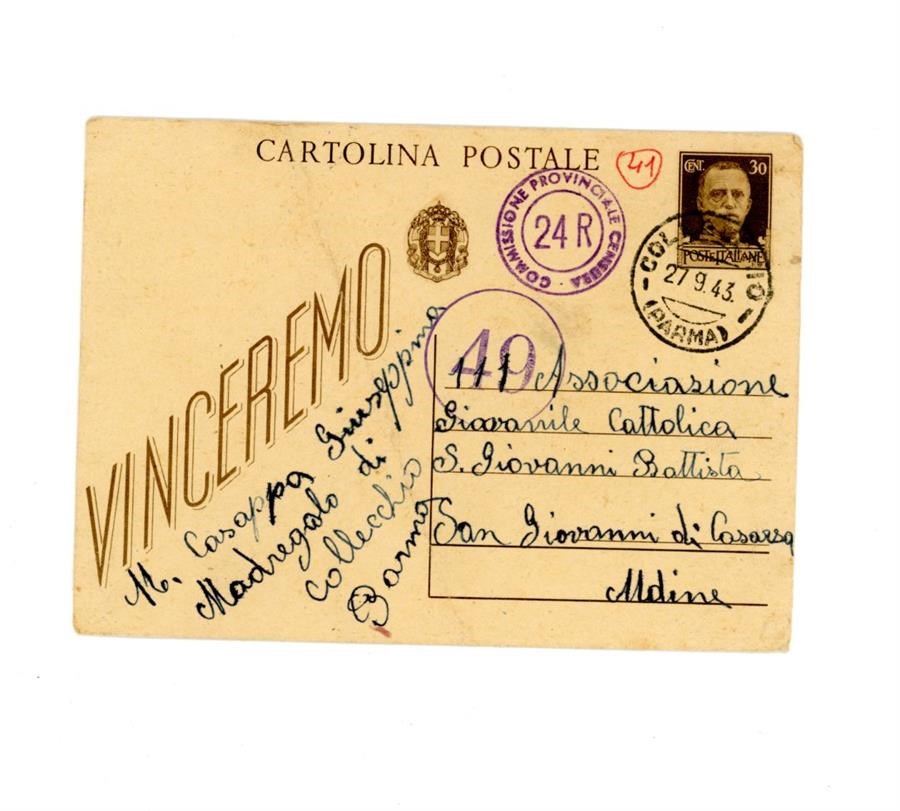 CARTOLINA POSTALE
41
CENT. 30
POSTE ITALIANE
COMMISSIONE PROVINCIALE CENSURA
24 R
27 9.43.
(PARMA)
VINCEREMO
49
Associazione
Giovanile Cattolica
S. Giovanni Battista
San Giovanni di Casarsa
Udine
M. Casappa Giuseppina
Madregolo di
Collecchio
Parma